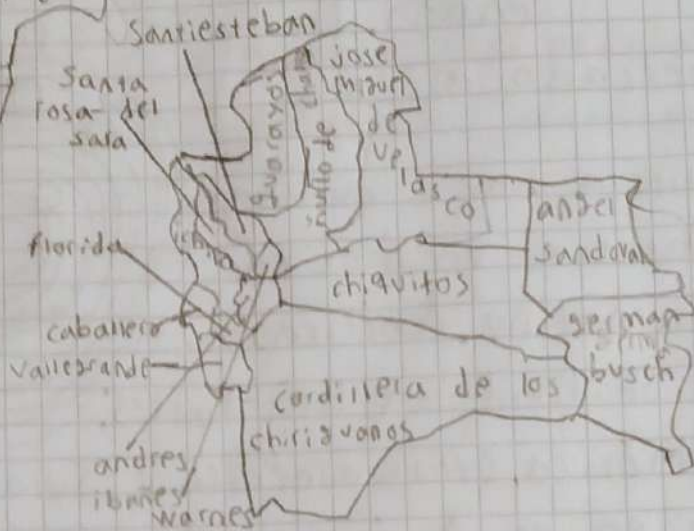 Santiesteban
Santa
rosa del
sara
guarayos
ñuflo de
chavez
jose
miguel
de
velasco
angel
sandoval
ichilo
florida
chiquitos
caballero
vallegrande
german
busch
cordillera de los
chiriguanos
andres
ibañes
warnes